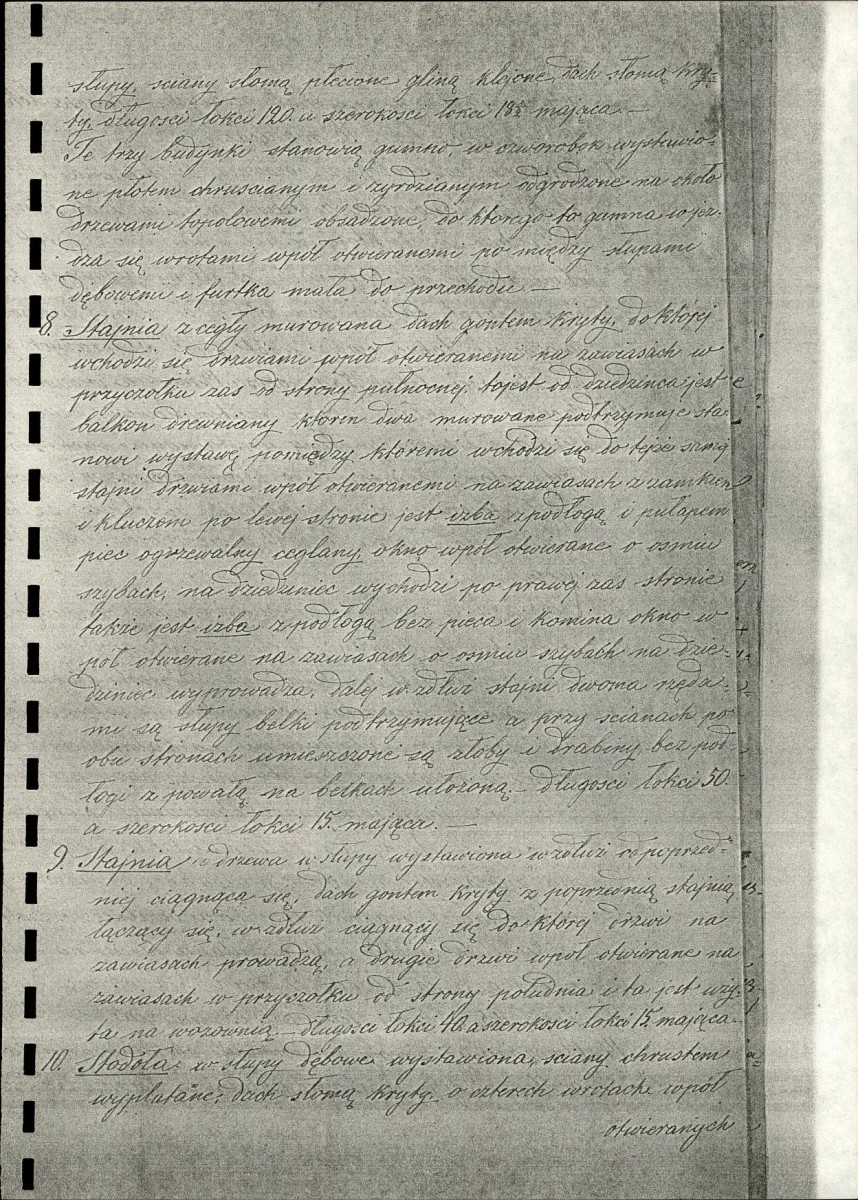 słupy, sciany słomą plecione gliną klejone, dach słomą kry-
ty, długosci łokci 120. a szerokosci łokci 18½ mająca. —
Te trzy budynki stanowią gumno, w czworobok wystawio-
ne płotem chruscianym i zyrdzianym odgrodzone na około
drzewami topolowemi obsadzone, do ktorego to gumna wjez-
dza się wrotami wpół otwieranemi po między słupami
dębowemi i furtka mała do przechodu. —
8. Stajnia z cegły murowana dach gontem kryty, do której
wchodzi się drzwiami wpół otwieranemi na zawiasach w
przyczołku zas od strony pułnocnej, tojest od dziedzinca jest
balkon drewniany ktoren dwa murowane podtrzymuje sta-
nowi wystawę pomiędzy któremi wchodzi się do tejże samej
stajni drzwiami wpół otwieranemi na zawiasach z zamkiem
i kluczem po lewej stronie jest izba z podłogą i pułapem
piec ogrzewalny ceglany, okno wpół otwierane o osmiu
szybach, na dziedziniec wychodzi po prawej zas stronie
także jest izba z podłogą bez pieca i komina okno w
pół otwierane na zawiasach o osmiu szybach na dzie-
dziniec wyprowadza, dalej wzdłuż stajni dwoma rzęda-
mi są słupy belki podtrzymujące a przy scianach po
obu stronach umieszczone są złoby i drabiny bez pod-
łogi z powałą na belkach ułożoną. — długosci łokci 50.
a szerokosci łokci 15. mająca. —
9. Stajnia z drzewa w słupy wystawiona wzdłuż od poprzed-
niej ciągnąca się, dach gontem kryty z poprzednią stajnią
łączący się, wzdłuz ciągnący się do której drzwi na
zawiasach prowadzą, a drugie drzwi wpół otwierane na
zawiasach w przyczołku od strony południa i ta jest uzy-
ta na wozownią. — długosci łokci 40. a szerokosci łokci 15. mająca. —
10. Stodoła w słupy dębowe wystawiona, sciany chrustem
wyplatane, dach słomą kryty, o czterech wrotach wpół
otwieranych